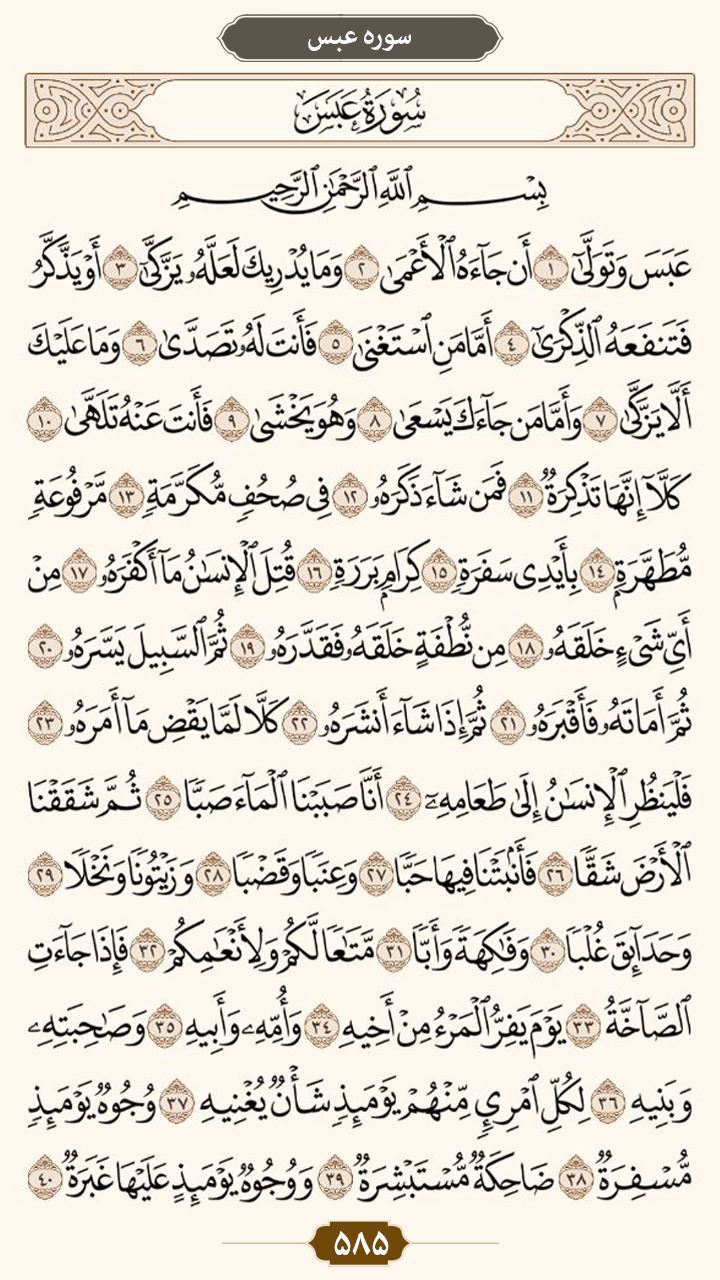 سوره عبس
سُورَةُ عَبَسَ
بِسْمِ اللَّهِ الرَّحْمَٰنِ الرَّحِيمِ
عَبَسَ وَتَوَلَّىٰٓ ١ أَن جَآءَهُ ٱلْأَعْمَىٰ ٢ وَمَا يُدْرِيكَ لَعَلَّهُۥ يَزَّكَّىٰٓ ٣ أَوْ يَذَّكَّرُ
فَتَنفَعَهُ ٱلذِّكْرَىٰٓ ٤ أَمَّا مَنِ ٱسْتَغْنَىٰ ٥ فَأَنتَ لَهُۥ تَصَدَّىٰ ٦ وَمَا عَلَيْكَ
أَلَّا يَزَّكَّىٰ ٧ وَأَمَّا مَن جَآءَكَ يَسْعَىٰ ٨ وَهُوَ يَخْشَىٰ ٩ فَأَنتَ عَنْهُ تَلَهَّىٰ ١٠
كَلَّآ إِنَّهَا تَذْكِرَةٌ ١١ فَمَن شَآءَ ذَكَرَهُۥ ١٢ فِى صُحُفٍ مُّكَرَّمَةٍ ١٣ مَّرْفُوعَةٍ
مُّطَهَّرَةٍۭ ١٤ بِأَيْدِى سَفَرَةٍ ١٥ كِرَامٍۭ بَرَرَةٍ ١٦ قُتِلَ ٱلْإِنسَٰنُ مَآ أَكْفَرَهُۥ ١٧ مِنْ
أَىِّ شَىْءٍ خَلَقَهُۥ ١٨ مِن نُّطْفَةٍ خَلَقَهُۥ فَقَدَّرَهُۥ ١٩ ثُمَّ ٱلسَّبِيلَ يَسَّرَهُۥ ٢٠
ثُمَّ أَمَاتَهُۥ فَأَقْبَرَهُۥ ٢١ ثُمَّ إِذَا شَآءَ أَنشَرَهُۥ ٢٢ كَلَّا لَمَّا يَقْضِ مَآ أَمَرَهُۥ ٢٣
فَلْيَنظُرِ ٱلْإِنسَٰنُ إِلَىٰ طَعَامِهِۦٓ ٢٤ أَنَّا صَبَبْنَا ٱلْمَآءَ صَبًّا ٢٥ ثُمَّ شَقَقْنَا
ٱلْأَرْضَ شَقًّا ٢٦ فَأَنۢبَتْنَا فِيهَا حَبًّا ٢٧ وَعِنَبًا وَقَضْبًا ٢٨ وَزَيْتُونًا وَنَخْلًا ٢٩
وَحَدَآئِقَ غُلْبًا ٣٠ وَفَٰكِهَةً وَأَبًّا ٣١ مَّتَٰعًا لَّكُمْ وَلِأَنْعَٰمِكُمْ ٣٢ فَإِذَا جَآءَتِ
ٱلصَّآخَّةُ ٣٣ يَوْمَ يَفِرُّ ٱلْمَرْءُ مِنْ أَخِيهِ ٣٤ وَأُمِّهِۦ وَأَبِيهِ ٣٥ وَصَٰحِبَتِهِۦ
وَبَنِيهِ ٣٦ لِكُلِّ ٱمْرِئٍ مِّنْهُمْ يَوْمَئِذٍ شَأْنٌ يُغْنِيهِ ٣٧ وُجُوهٌ يَوْمَئِذٍ
مُّسْفِرَةٌ ٣٨ ضَاحِكَةٌ مُّسْتَبْشِرَةٌ ٣٩ وَوُجُوهٌ يَوْمَئِذٍ عَلَيْهَا غَبَرَةٌ ٤٠
۵۸۵